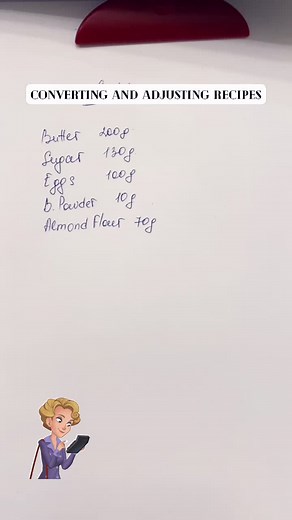 CONVERTING AND ADJUSTING RECIPES
Butter 200g
Sugar 130g
Eggs 100g
B. Powder 10g
Almond Flour 70g